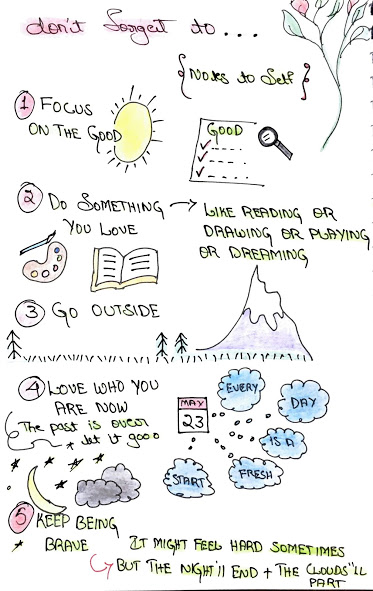 don't forget to...
{Notes to Self}
1 FOCUS
ON THE GOOD
GOOD
2 DO SOMETHING
YOU LOVE
→ LIKE READING OR
DRAWING OR PLAYING
OR DREAMING
3 GO OUTSIDE
4 LOVE WHO YOU
ARE NOW
The past is over
* let it gooo
MAY
23
EVERY
DAY
IS A
FRESH
START
5 KEEP BEING
BRAVE
IT MIGHT FEEL HARD SOMETIMES
BUT THE NIGHT'll END + THE CLOUDS'll
PART